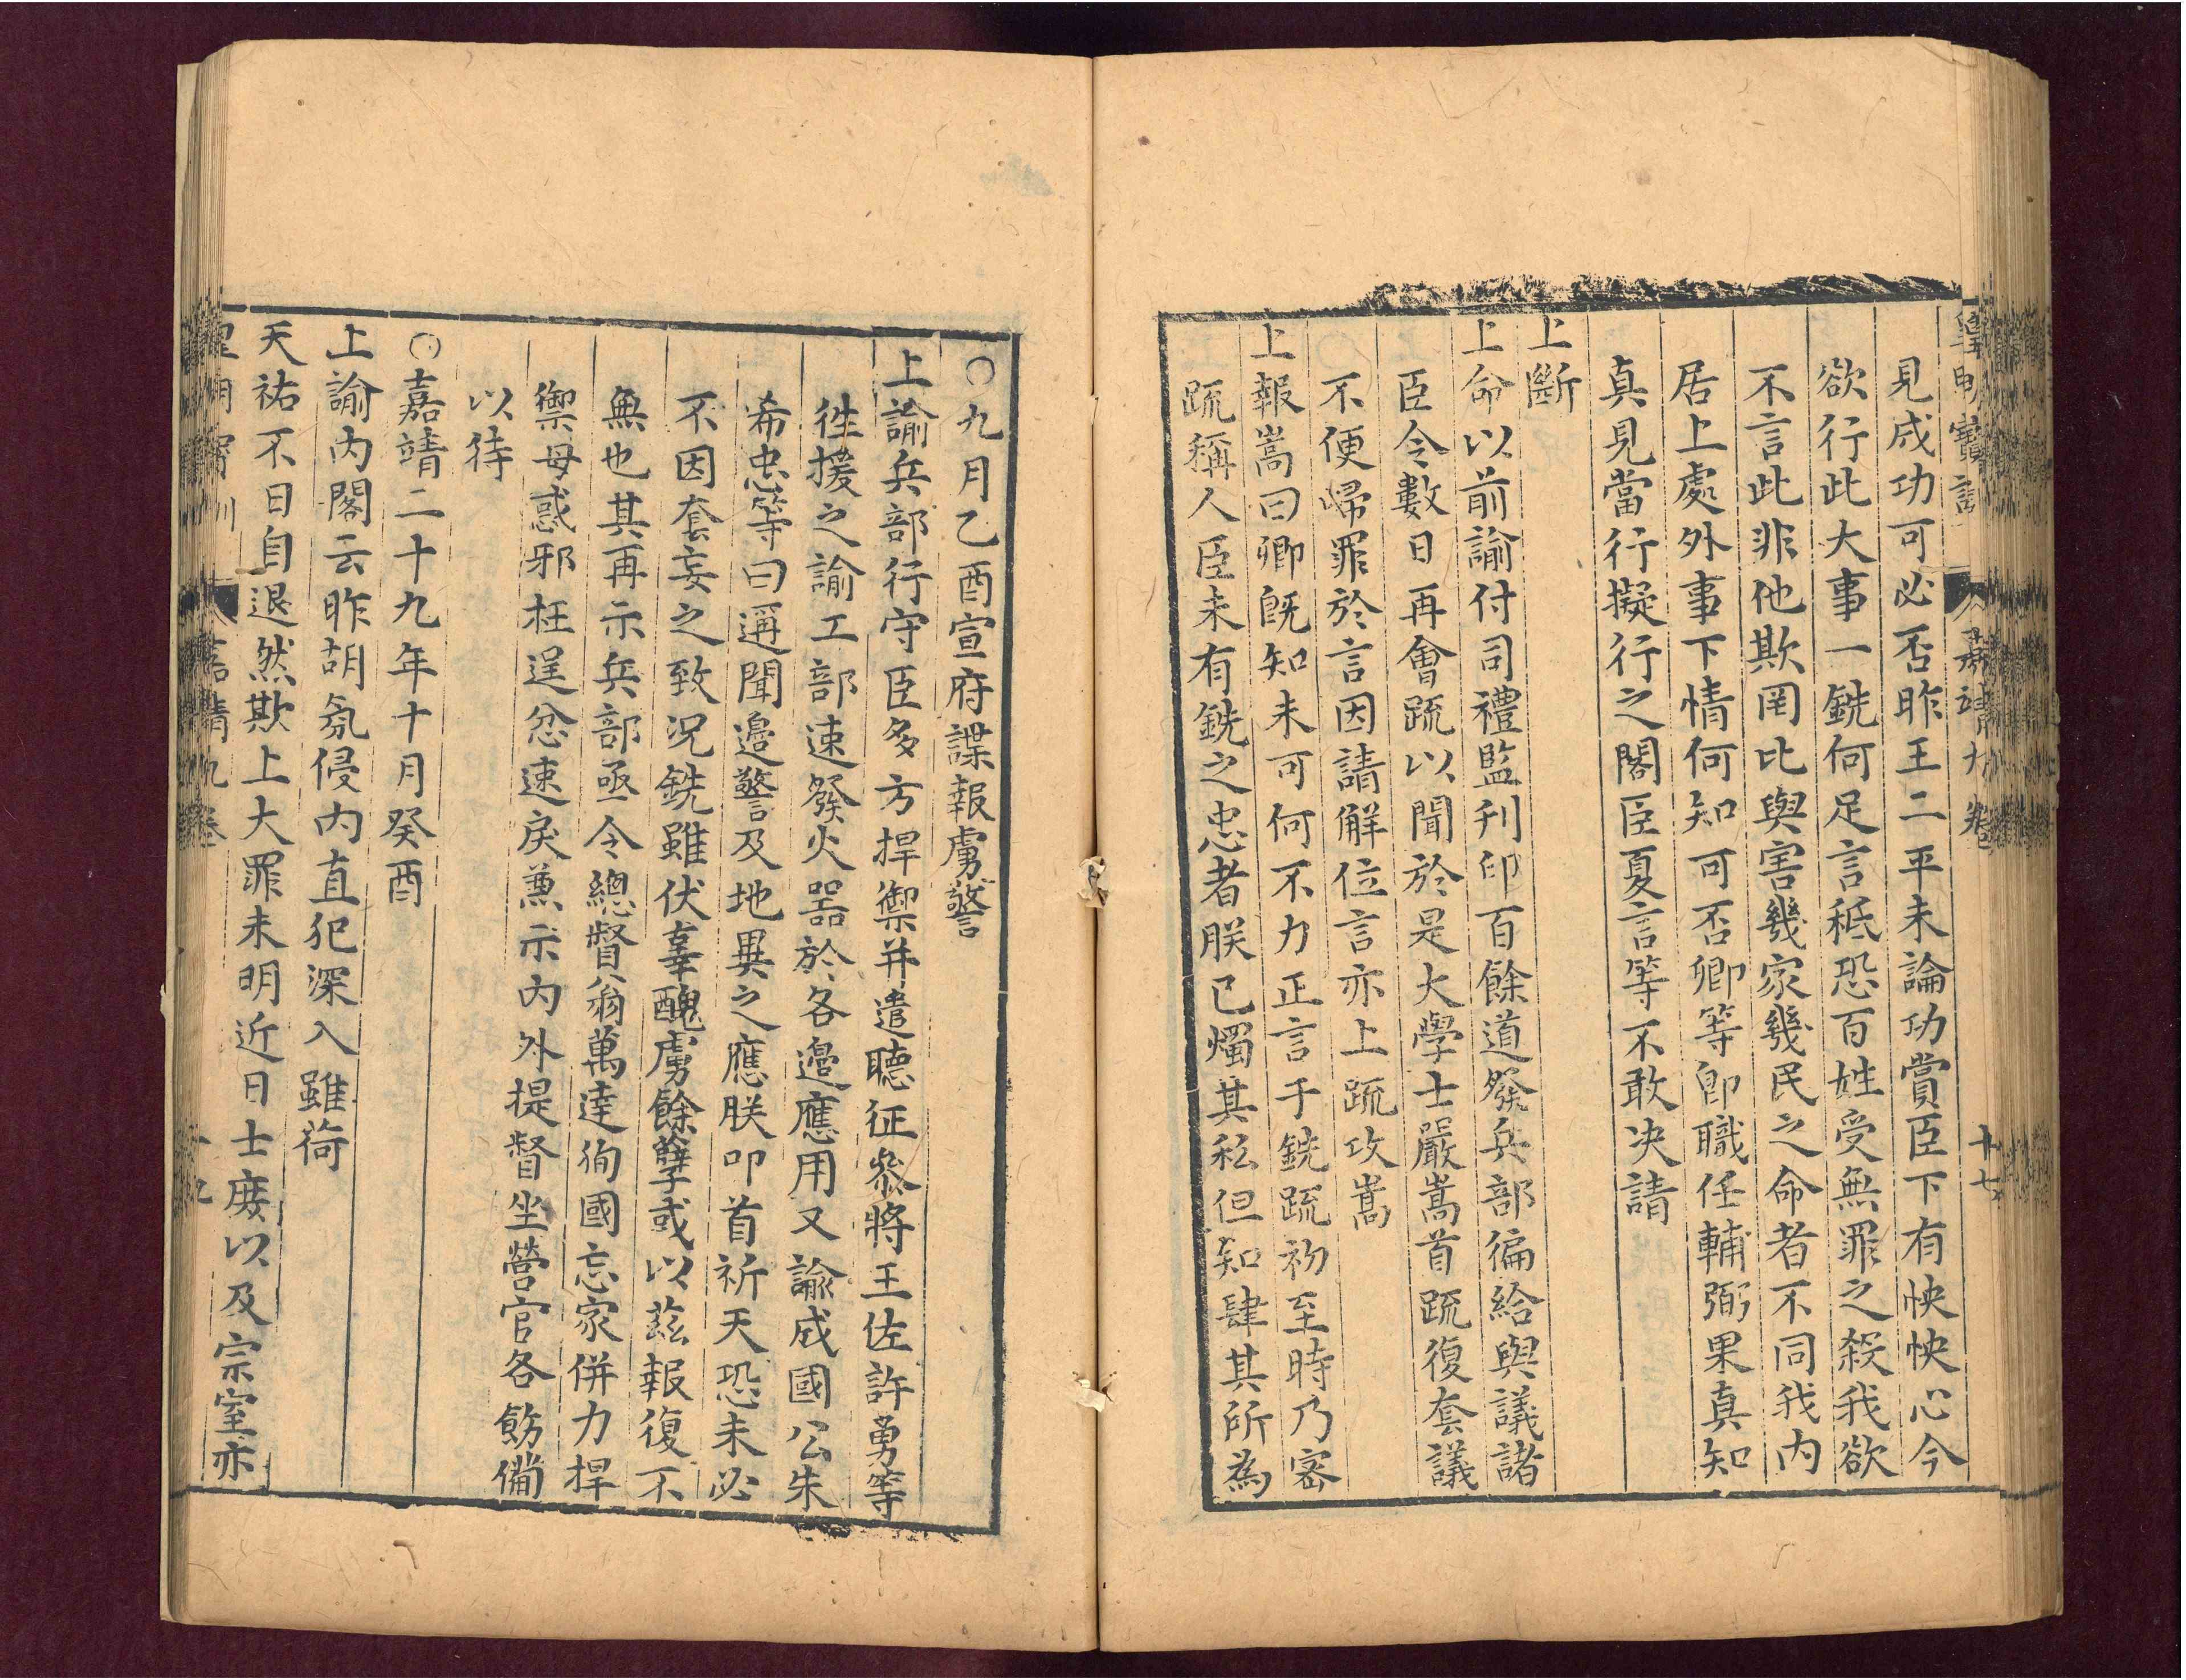 皇明寶訓 嘉靖九卷 十七
見成功可必否昨王二平未論功賞臣下有怏怏心今
欲行此大事一銑何足言秪恐百姓受無罪之殺我欲
不言此非他欺罔比與害幾家幾民之命者不同我内
居上處外事下情何知可否卿等卽職任輔弼果真知
真見當行擬行之閣臣夏言等不敢决請
上斷
上命以前諭付司禮監刋印百餘道發兵部徧給與議諸
臣令數日再會疏以聞於是大學士嚴嵩首疏復套議
不便歸罪於言因請解位言亦上疏攻嵩
上報嵩曰卿旣知未可何不力正言于銑疏初至時乃密
疏稱人臣未有銑之忠者朕已燭其私但知肆其所為
○九月乙酉宣府諜報虜警
上諭兵部行守臣多方捍禦并遣聽征叅將王佐許勇等
徃援之諭工部速發火器於各邉應用又諭成國公朱
希忠等曰邇聞邉警及地異之應朕叩首祈天恐未必
不因套妄之致况銑雖伏辜醜虜餘孽或以兹報復不
無也其再示兵部亟令總督翁萬達徇國忘家併力捍
禦毋惑邪枉逞忿速戾兼示内外提督坐營官各飭備
以待
○嘉靖二十九年十月癸酉
上諭内閣云昨胡氛侵内直犯深入雖荷
天祐不日自退然欺上大罪未明近日士庻以及宗室亦
皇明寳訓 嘉靖九卷